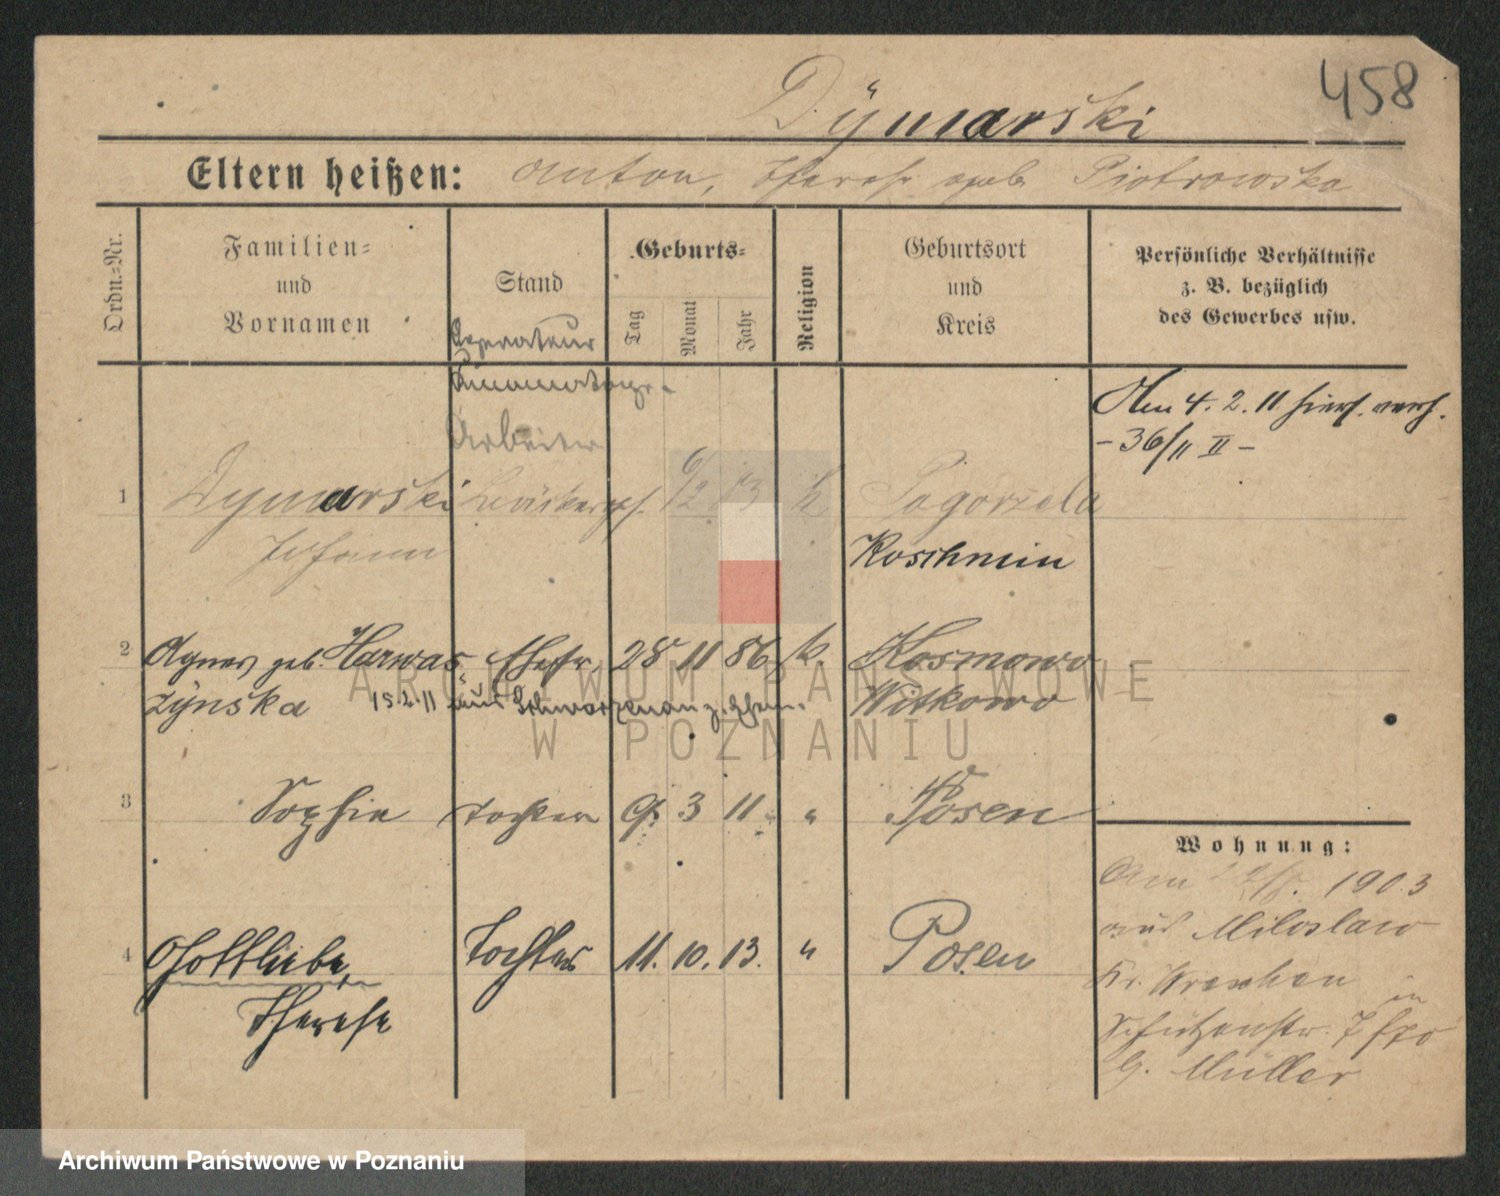 458
Dÿmarski
Eltern heißen: Anton, Therese geb. Piotrowska
Ordn.=Nr.
Familien=
und
Vornamen
Stand
Geburts=
Tag
Monat
Jahr
Religion
Geburtsort
und
Kreis
Persönliche Verhältnisse
z. B. bezüglich
des Gewerbes usw.
Operateur
Arbeiter
Am 4. 2. 11 hiers. verh.
- 36/11 II -
1 Dymarski Bäckerges. 6/2 83 k Pogorzela
Johann
Koschmin
2 Agnes geb. Harwas Ehefr. 28 11 86 k. Kosmowo
zÿnska 15.2.11 aus Schwarzenau z. Ehem. Witkowo
3 Sophie Tochter 9. 3 11 " Posen
4 Gottliebe, Tochter 11. 10. 13. " Posen
Therese
Wohnung:
Am 1903
aus Miloslaw
Kr. Wreschen
Schützenstr. 7
b. Müller
ARCHIWUM PAŃSTWOWE
W POZNANIU
Archiwum Państwowe w Poznaniu